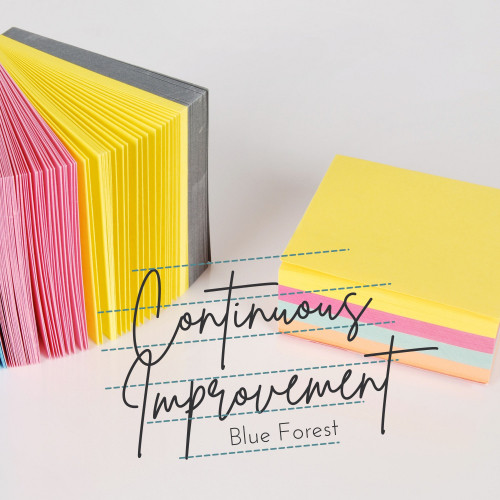 Continuous
Improvement
Blue Forest